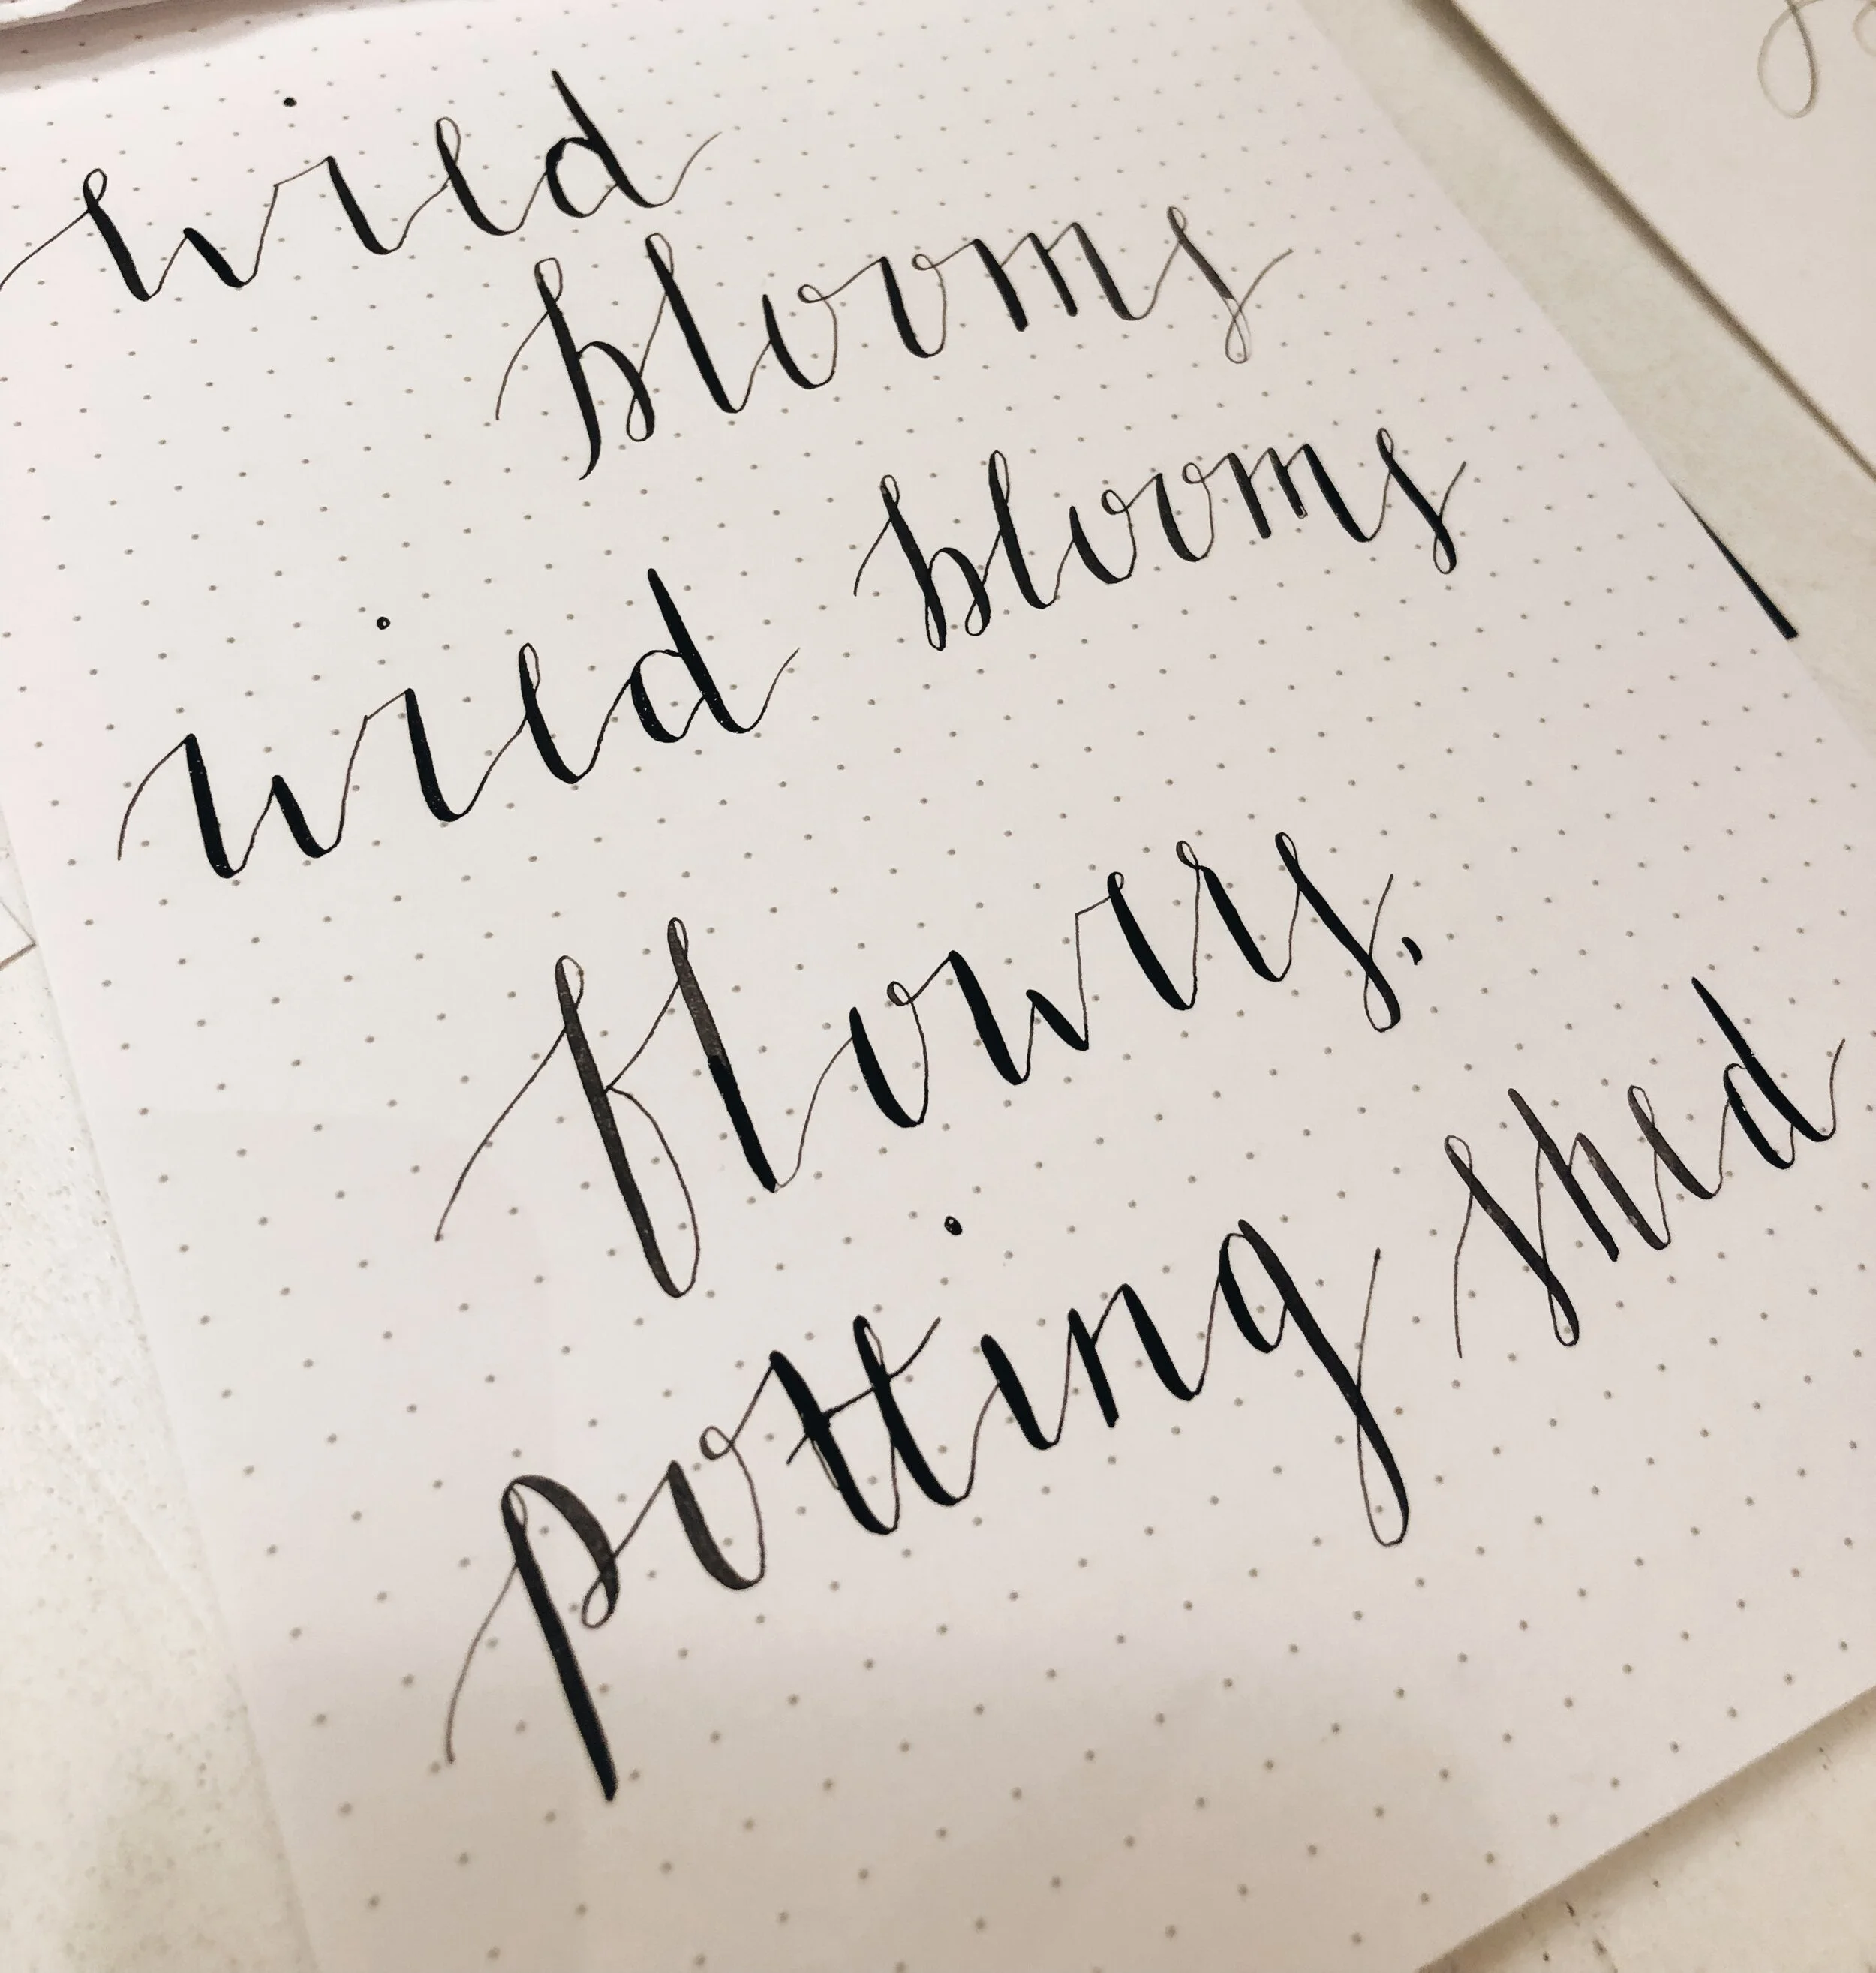 wild
blooms
wild blooms
flowers.
potting shed